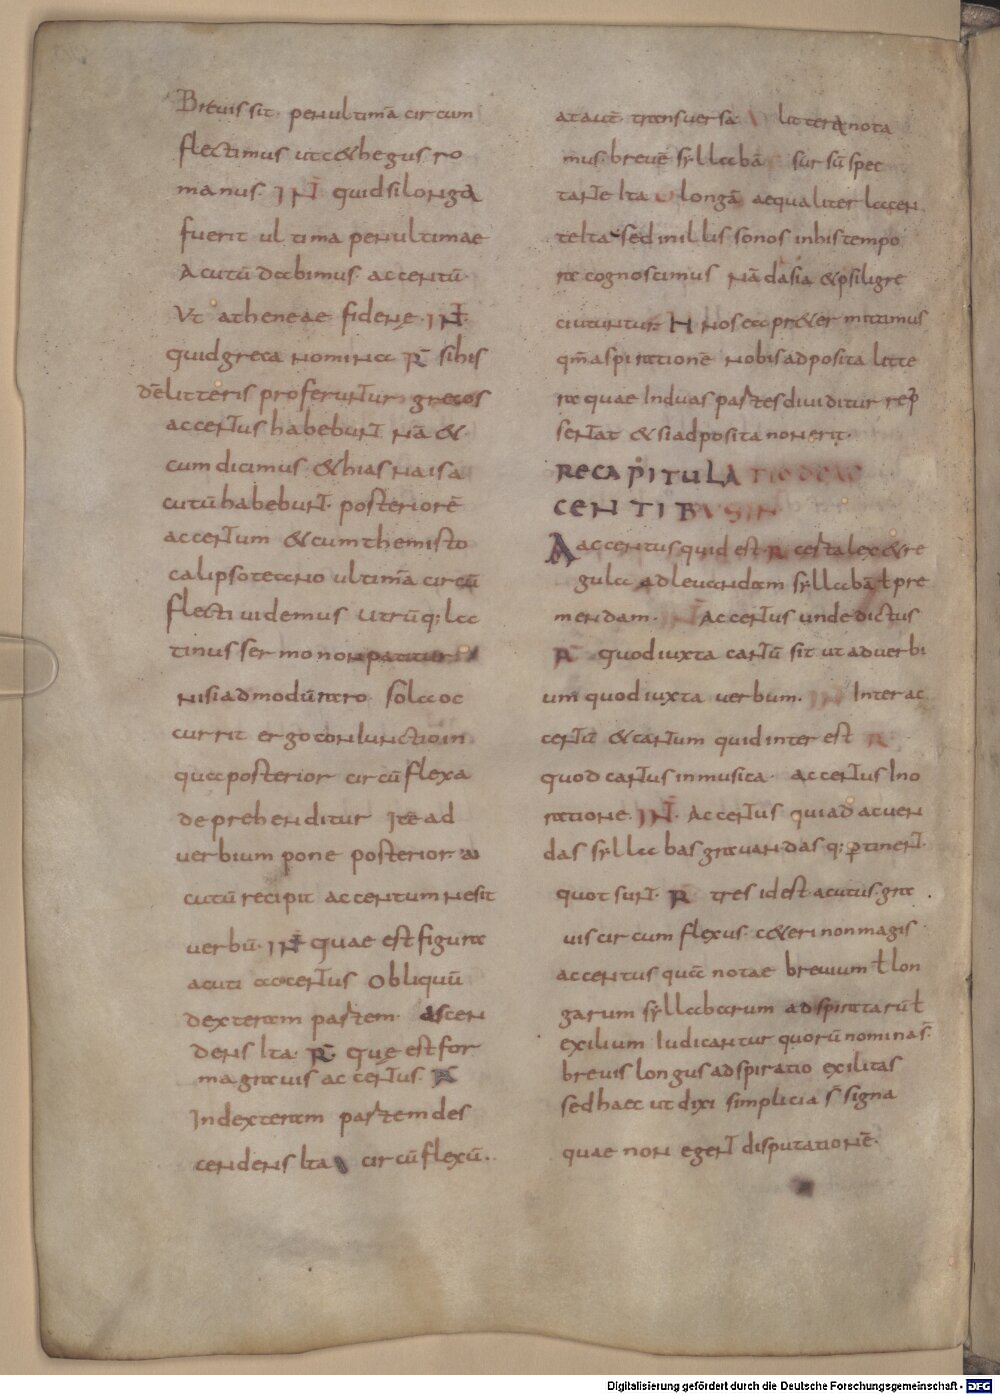 Breuis sit. penultimā circum
flectimus ut c&hegus ro
manus. IN̄ quid si longa
fuerit ultima penultimae
acutū dabimus accentū.
Vt atheneae fidenę. IN̄.
quid greca nomina R̄ si his
dē litteris proferuntur grecos
accentus habebunt nā &
cum dicimus &hias naisa
cutū habebunt. posteriorē
accentum &cum themisto
calipso teano ultimā circū
flecti uidemus utrūq; la
tinus sermo non patitur
nisi admodū raro sola oc
currit ergo coniunctio in
qua posterior circūflexa
deprehenditur Ite ad
uerbium pone posterior a
cutū recipit accentum ne sit
uerbū. IN̄ quae est figura
acuti accentus Obliquū
dexteram partem ascen
dens Ita. R̄. quę est for
ma grauis accentus. R̄
Indexteram partem des
cendens Ita circūflexū..
atautē transuersa littera nota
mus. breuē syllabā sursū spec
tante Ita longā aequaliter Iacen
te Ita sed in illis sonos in his tempo
ra cognoscimus nā dasia &psili gre
ciutuntur. H nos ea pr&ermittimus
qm̄ aspirationē nobis adposita litte
ra quae Induas partes diuiditur rep̄
sentat & si adposita non erit.
RECAPITULATIO DE AC
CENTIBUS IN
Aaccentus quid est. R certa lex &re
gula ad leuandam syllabā ł pre
mendam. IN Accentus unde dictus
R̄ quod iuxta cantū sit ut aduerbi
um quod iuxta uerbum. IN Inter ac
centū &cantum quid inter est R
quod cantus in musica. accentus Ino
ratione. IN̄. Accentus qui ad acuen
das syllabas grauandas q; ꝑtinent.
quot sunt. R̄ tres id est acutus. gra
uis circumflexus. c&eri non magis
accentus quā notae breuium ł lon
garum syllabarum adspirataruū ł
exilium Iudicantur quorū nomina s̄
breuis longus adspiratio exilitas
sed haec ut dixi simplicia s̄ signa
quae non egent disputationē.
Digitalisierung gefördert durch die Deutsche Forschungsgemeinschaft - DFG